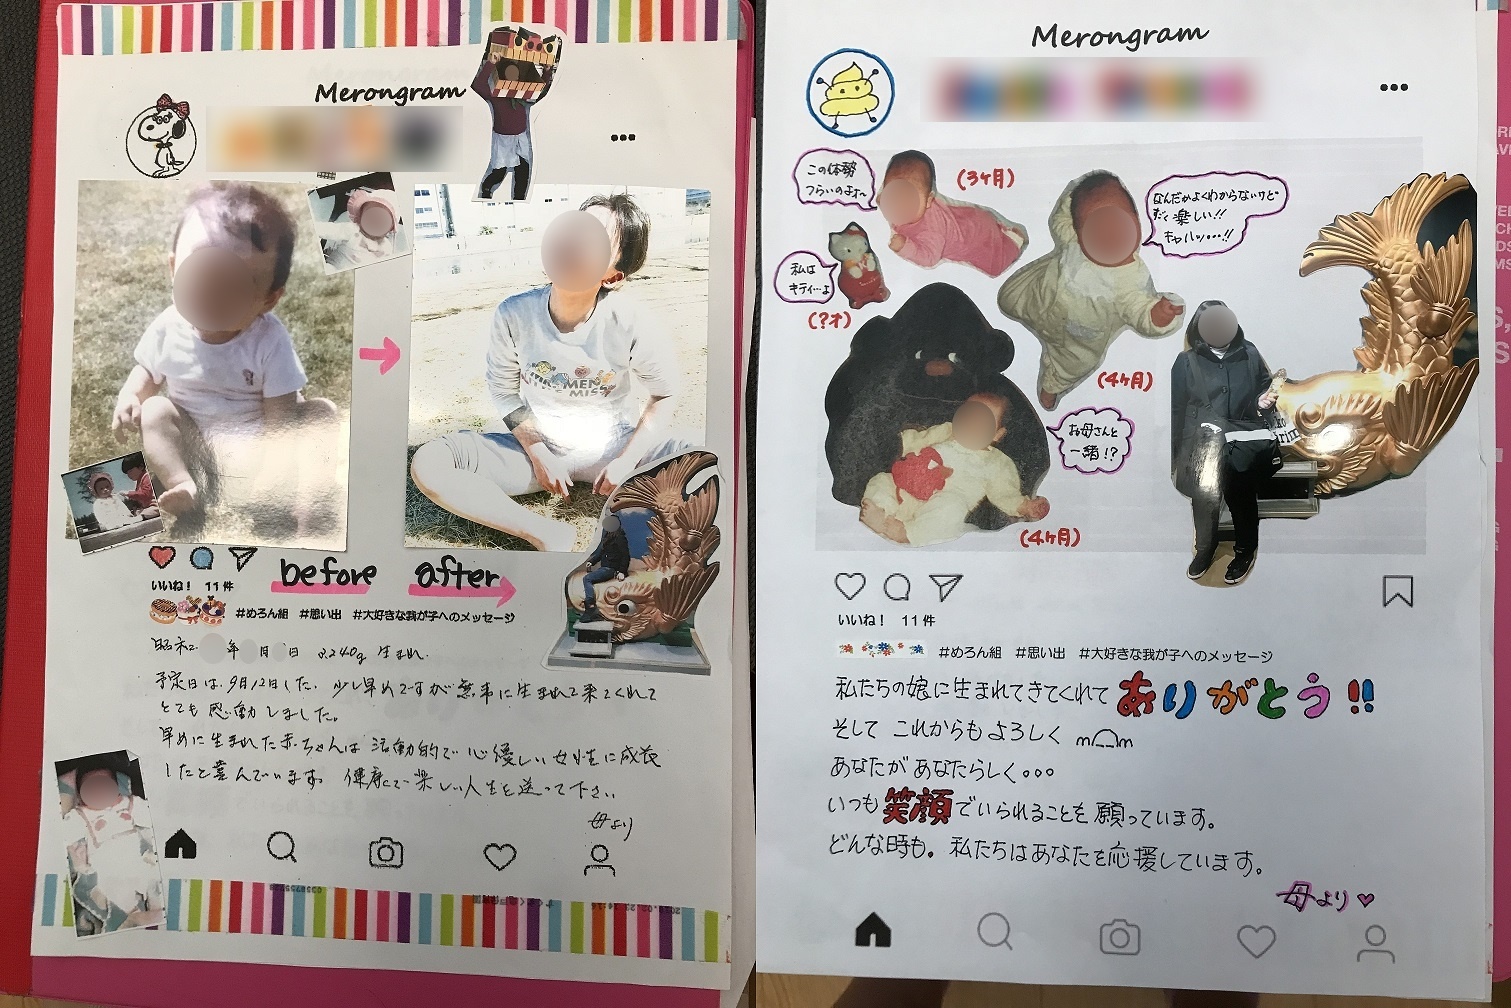 Merongram
いいね! 11件
before
after
#めろん組 #思い出 #大好きな我が子へのメッセージ
昭和 年 月 日 3,240g 生まれ.
予定日は、9月12日でした、少し早めですが無事に生まれて来てくれて
とても感動しました。
早めに生まれた赤ちゃんは活動的で心優しい女性に成長
したと喜んでいます。健康で楽しい人生を送って下さい
母より
Merongram
この体勢
つらいのよォ〜
(3ヶ月)
なんだかよくわからないけど
楽しい!!
キャハッ…!!
私は
キティ…よ
(?才)
(4ヶ月)
お母さんと
一緒!?
(4ヶ月)
いいね! 11件
#めろん組 #思い出 #大好きな我が子へのメッセージ
私たちの娘に生まれてきてくれて ありがとう!!
そして これからもよろしく
あなたが あなたらしく。。。
いつも笑顔でいられることを願っています。
どんな時も。私たちはあなたを応援しています。
母より♡